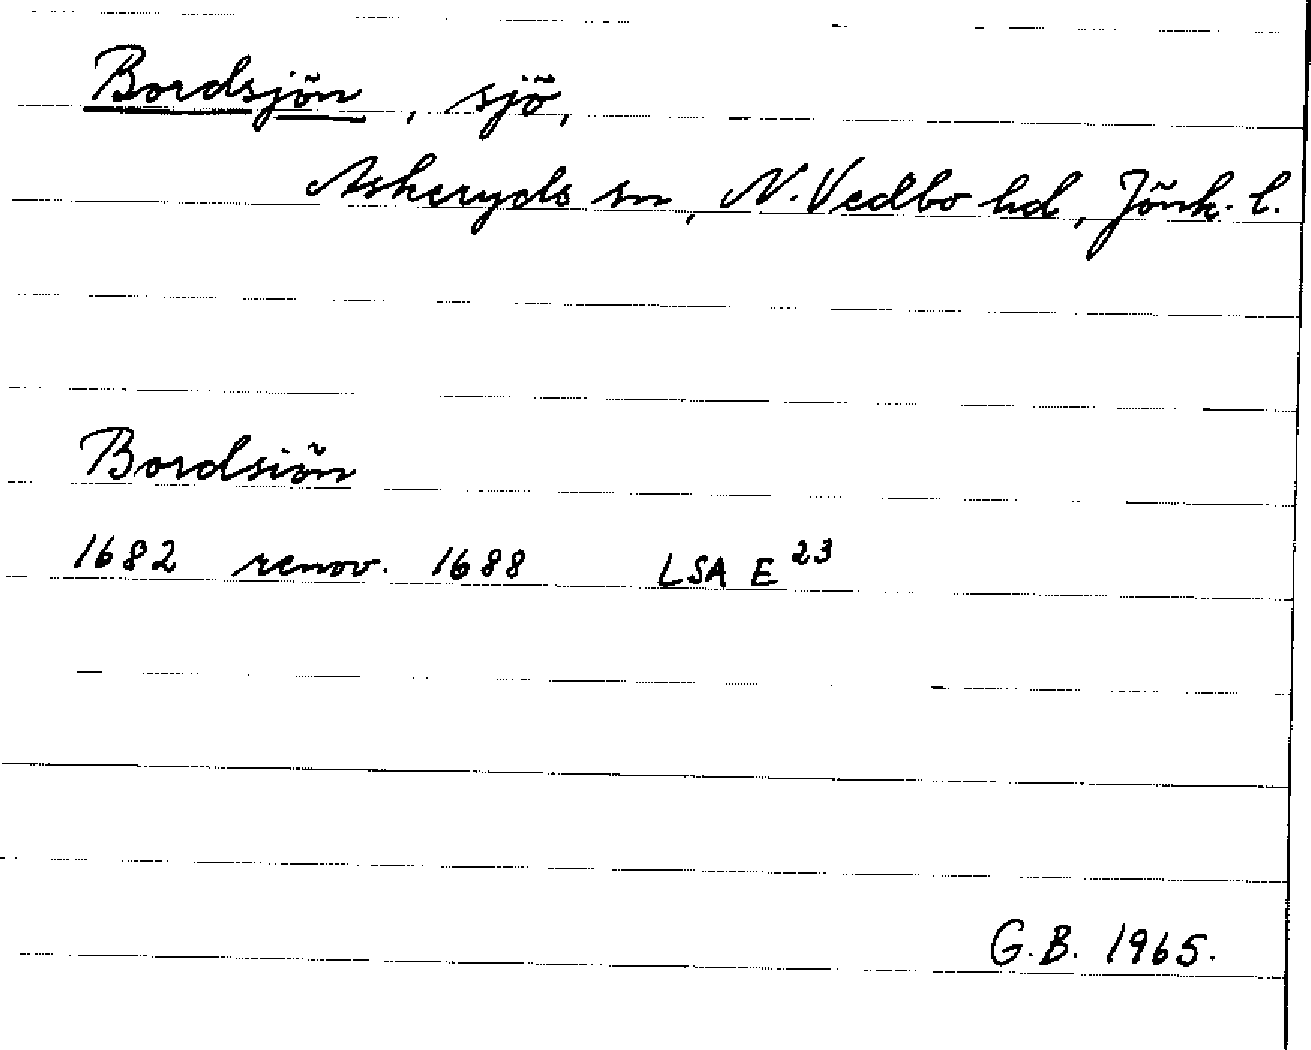 Bordsjön, sjö,
Askeryds sn, N. Vedbo hd, Jönk. l.
Bordsiön
1682 renov. 1688 LSA E 23
G.B. 1965.